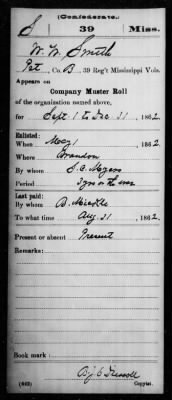 (Confederate.)
S 39 Miss.
W. W. Smith
Pvt, Co. B, 39 Reg't Mississippi Vols.
Appears on
Company Muster Roll
of the organization named above,
for Sept 1 to Dec 31, 1862
Enlisted:
When May 1, 1862
Where Brandon
By whom J. C. Myers
Period 3 yrs or the war
Last paid:
By whom B.
To what time Aug 31, 1862
Present or absent Present
Remarks:
Book mark:
(642)
Copyist.